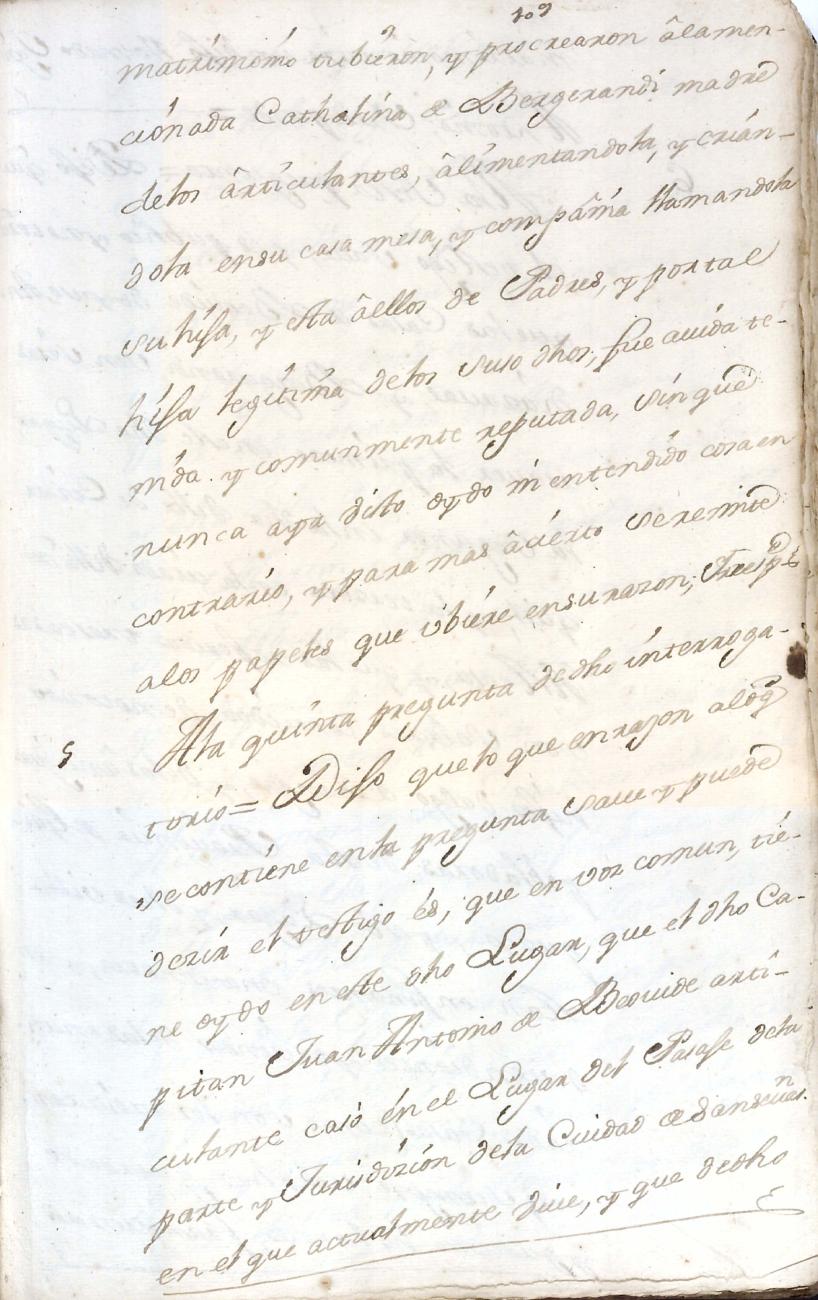 109
matrimonio tubieron, y procrearon âlamen-
cionada Cathalina de Bergerandi madre
delos ârticulantes, âlimentandola, y crian-
dola ensu casa mesa, y compañia llamandola
su hija, y esta âellos de Padres, y portal
hija legitima delos suso dhos, fue auida te-
nida y comunmente reputada, sin que
nunca aya dicho oydo ni entendido cosa en
contrario, y para mas âcierto seremite
alos papeles que ubiere ensurazon,
5 Ala quinta pregunta dedho interroga-
torio = Dijo que lo que enrazon alo q
se contiene enla pregunta saue y puede
dezir el testigo és, que en voz comun, tié-
ne oydo en este dho Lugar, que el dho Ca-
pitan Juan Antonio de Beouide arti-
culante casó én el Lugar del Pasaje dela
parte y Jurisdizión dela Ciudad de Sanseuan.
en el que actualmente viue, y que dedho